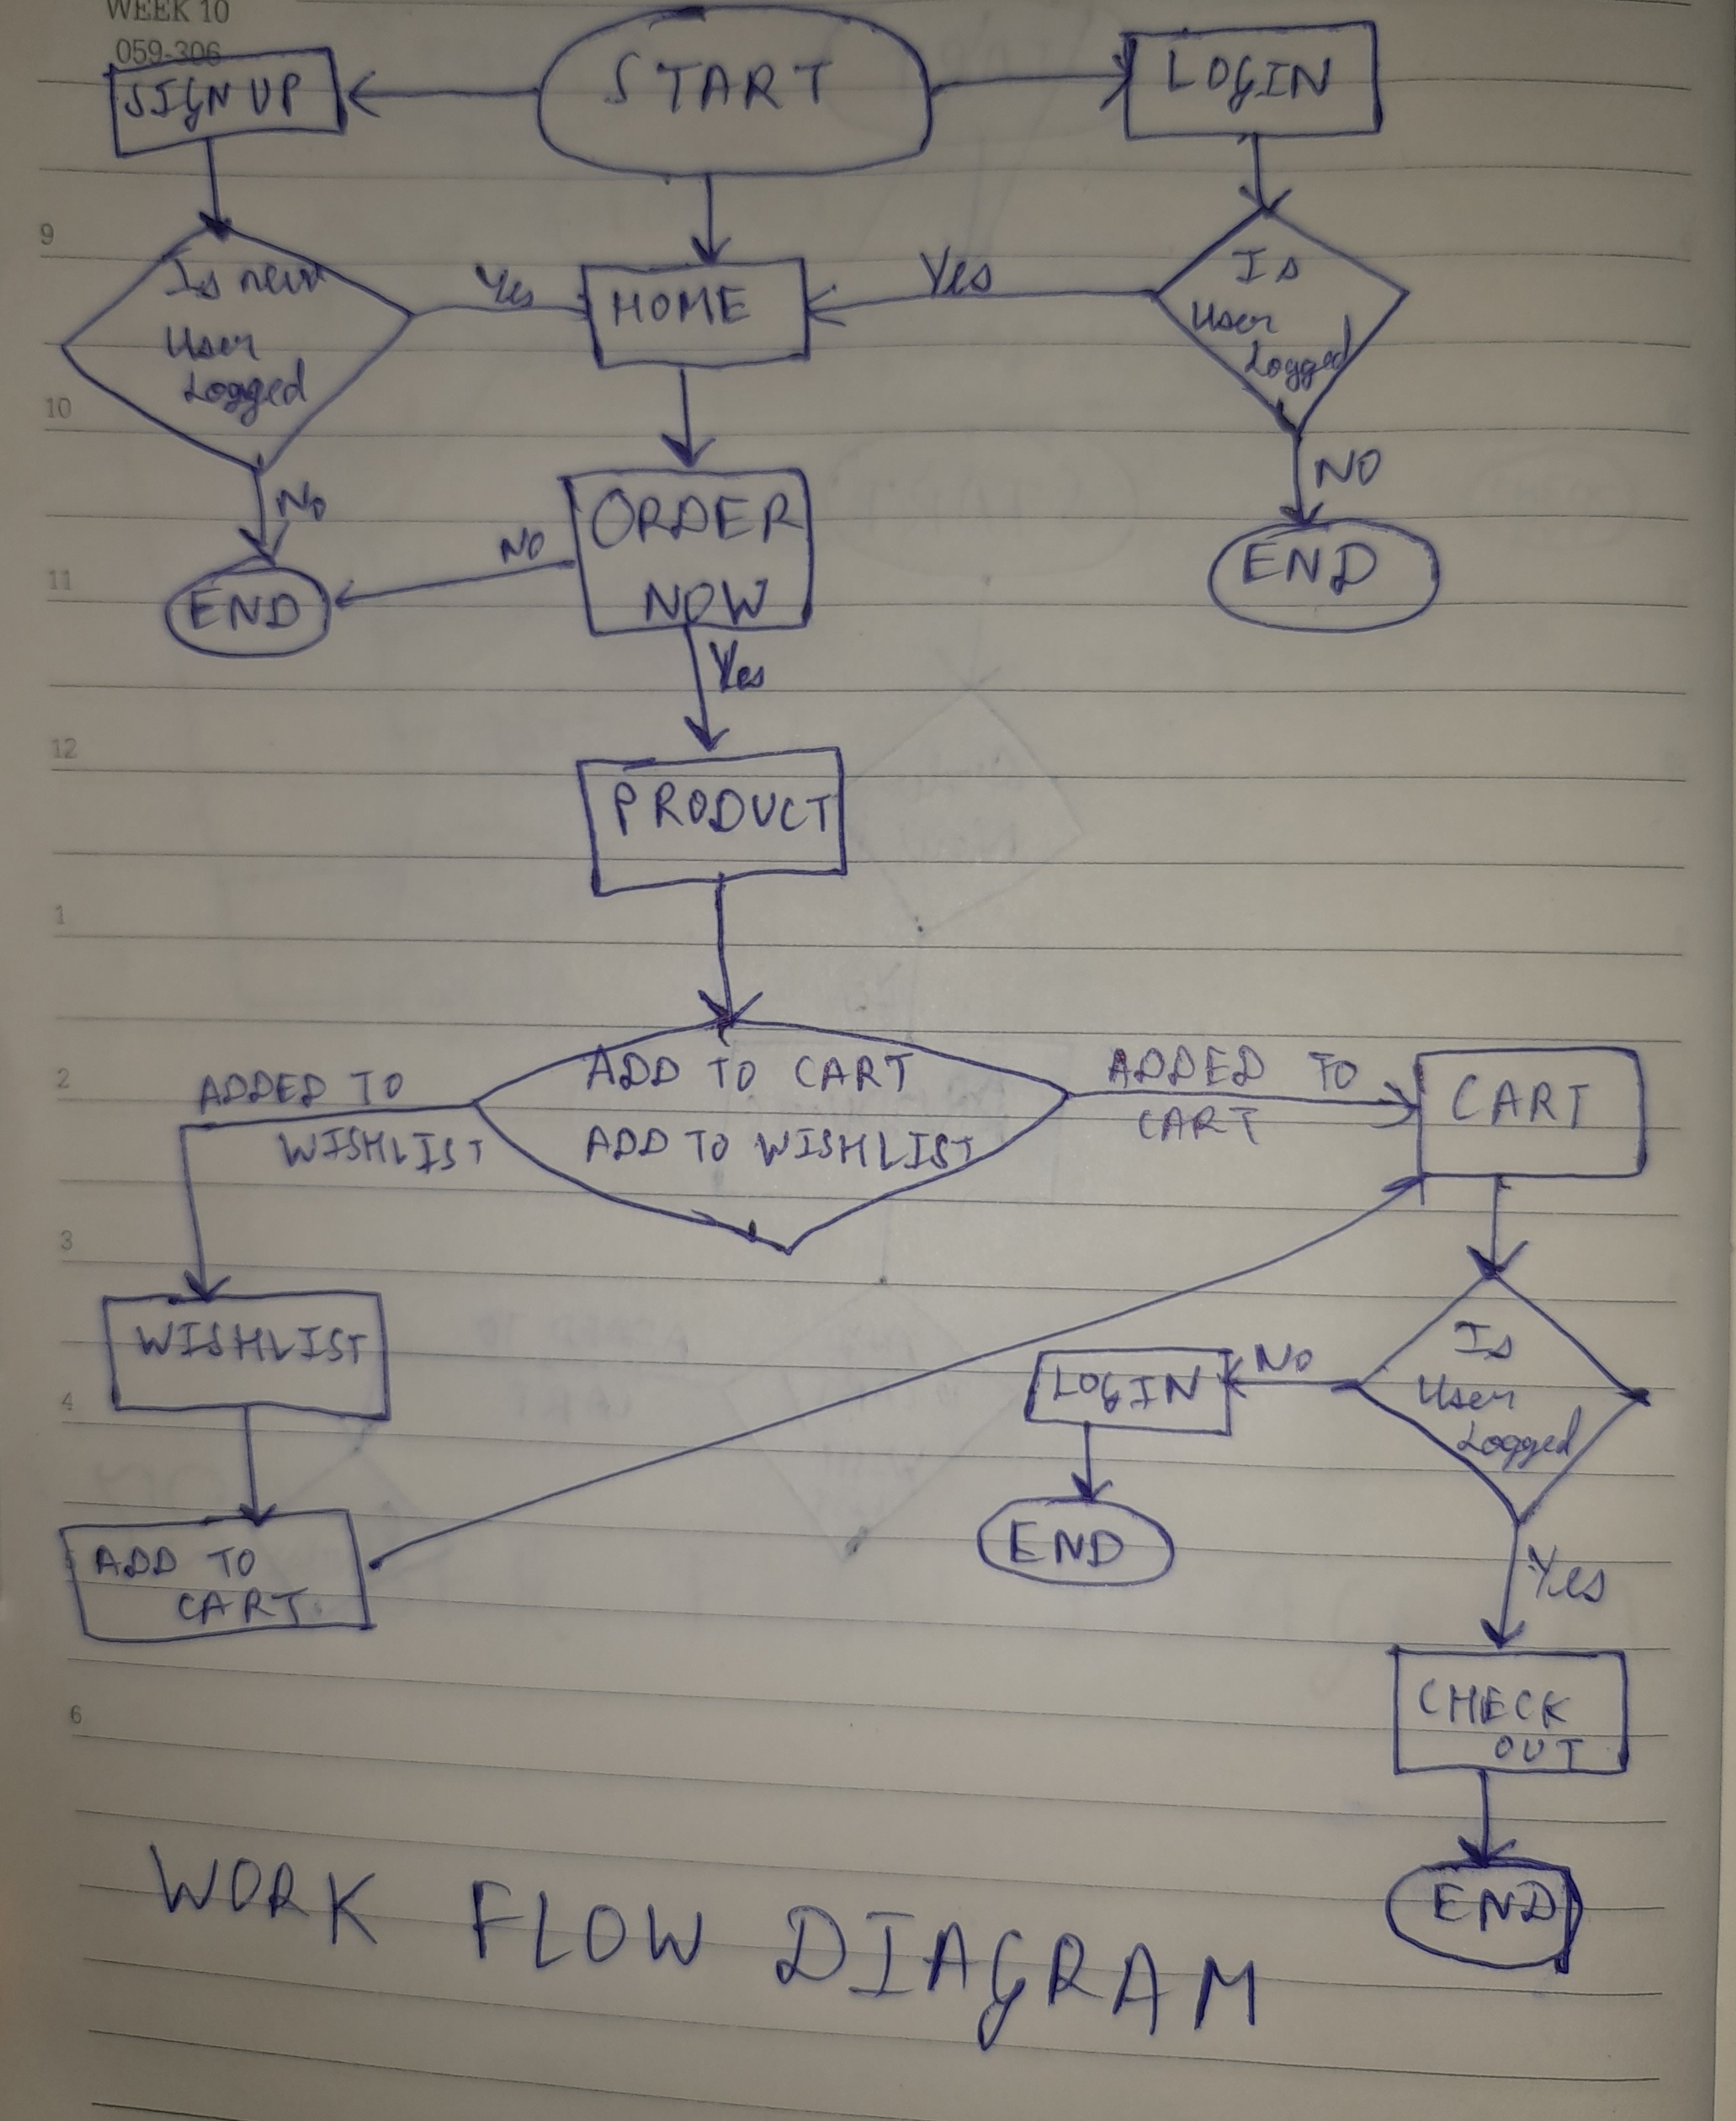 WEEK 10
059-306
START
LOGIN
SIGN UP
Is new
User
Logged
Yes
HOME
Yes
Is
User
Logged
9
10
No
NO
ORDER
NOW
NO
END
END
11
Yes
12
PRODUCT
1
2
ADD TO CART
ADD TO WISHLIST
ADDED TO
WISHLIST
ADDED TO
CART
CART
3
WISHLIST
4
LOGIN
No
Is
User
Logged
END
ADD TO
CART
Yes
CHECK
OUT
6
END
WORK FLOW DIAGRAM